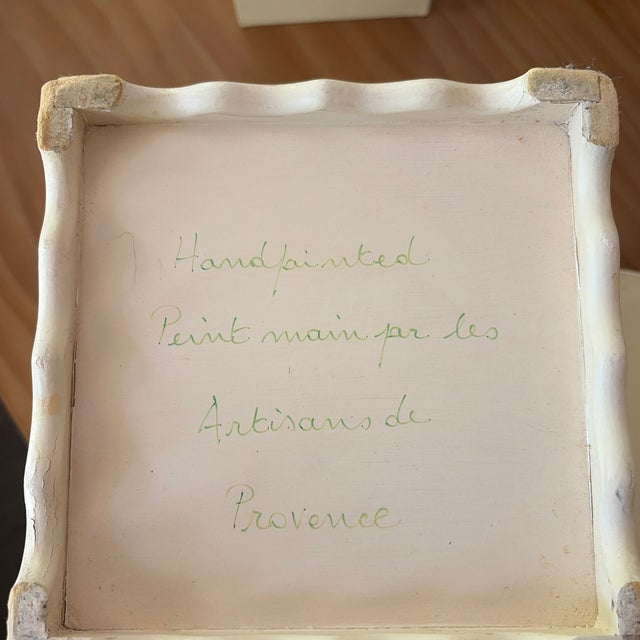 Handpainted
Peint main par les
Artisans de
Provence